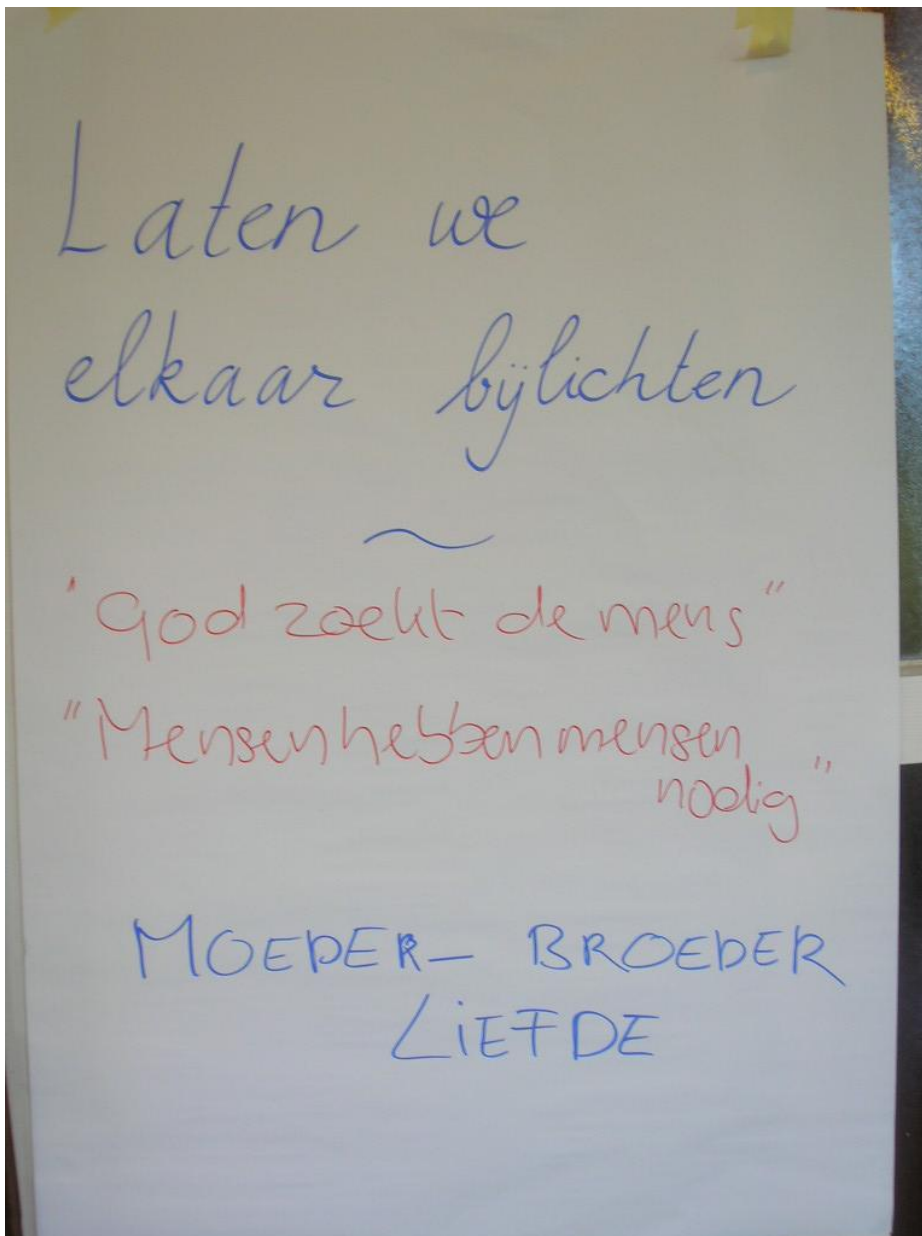 Laten we
elkaar bijlichten
~
"God zoekt de mens"
"Mensen hebben mensen
nodig"
MOEDER- BROEDER
LIEFDE